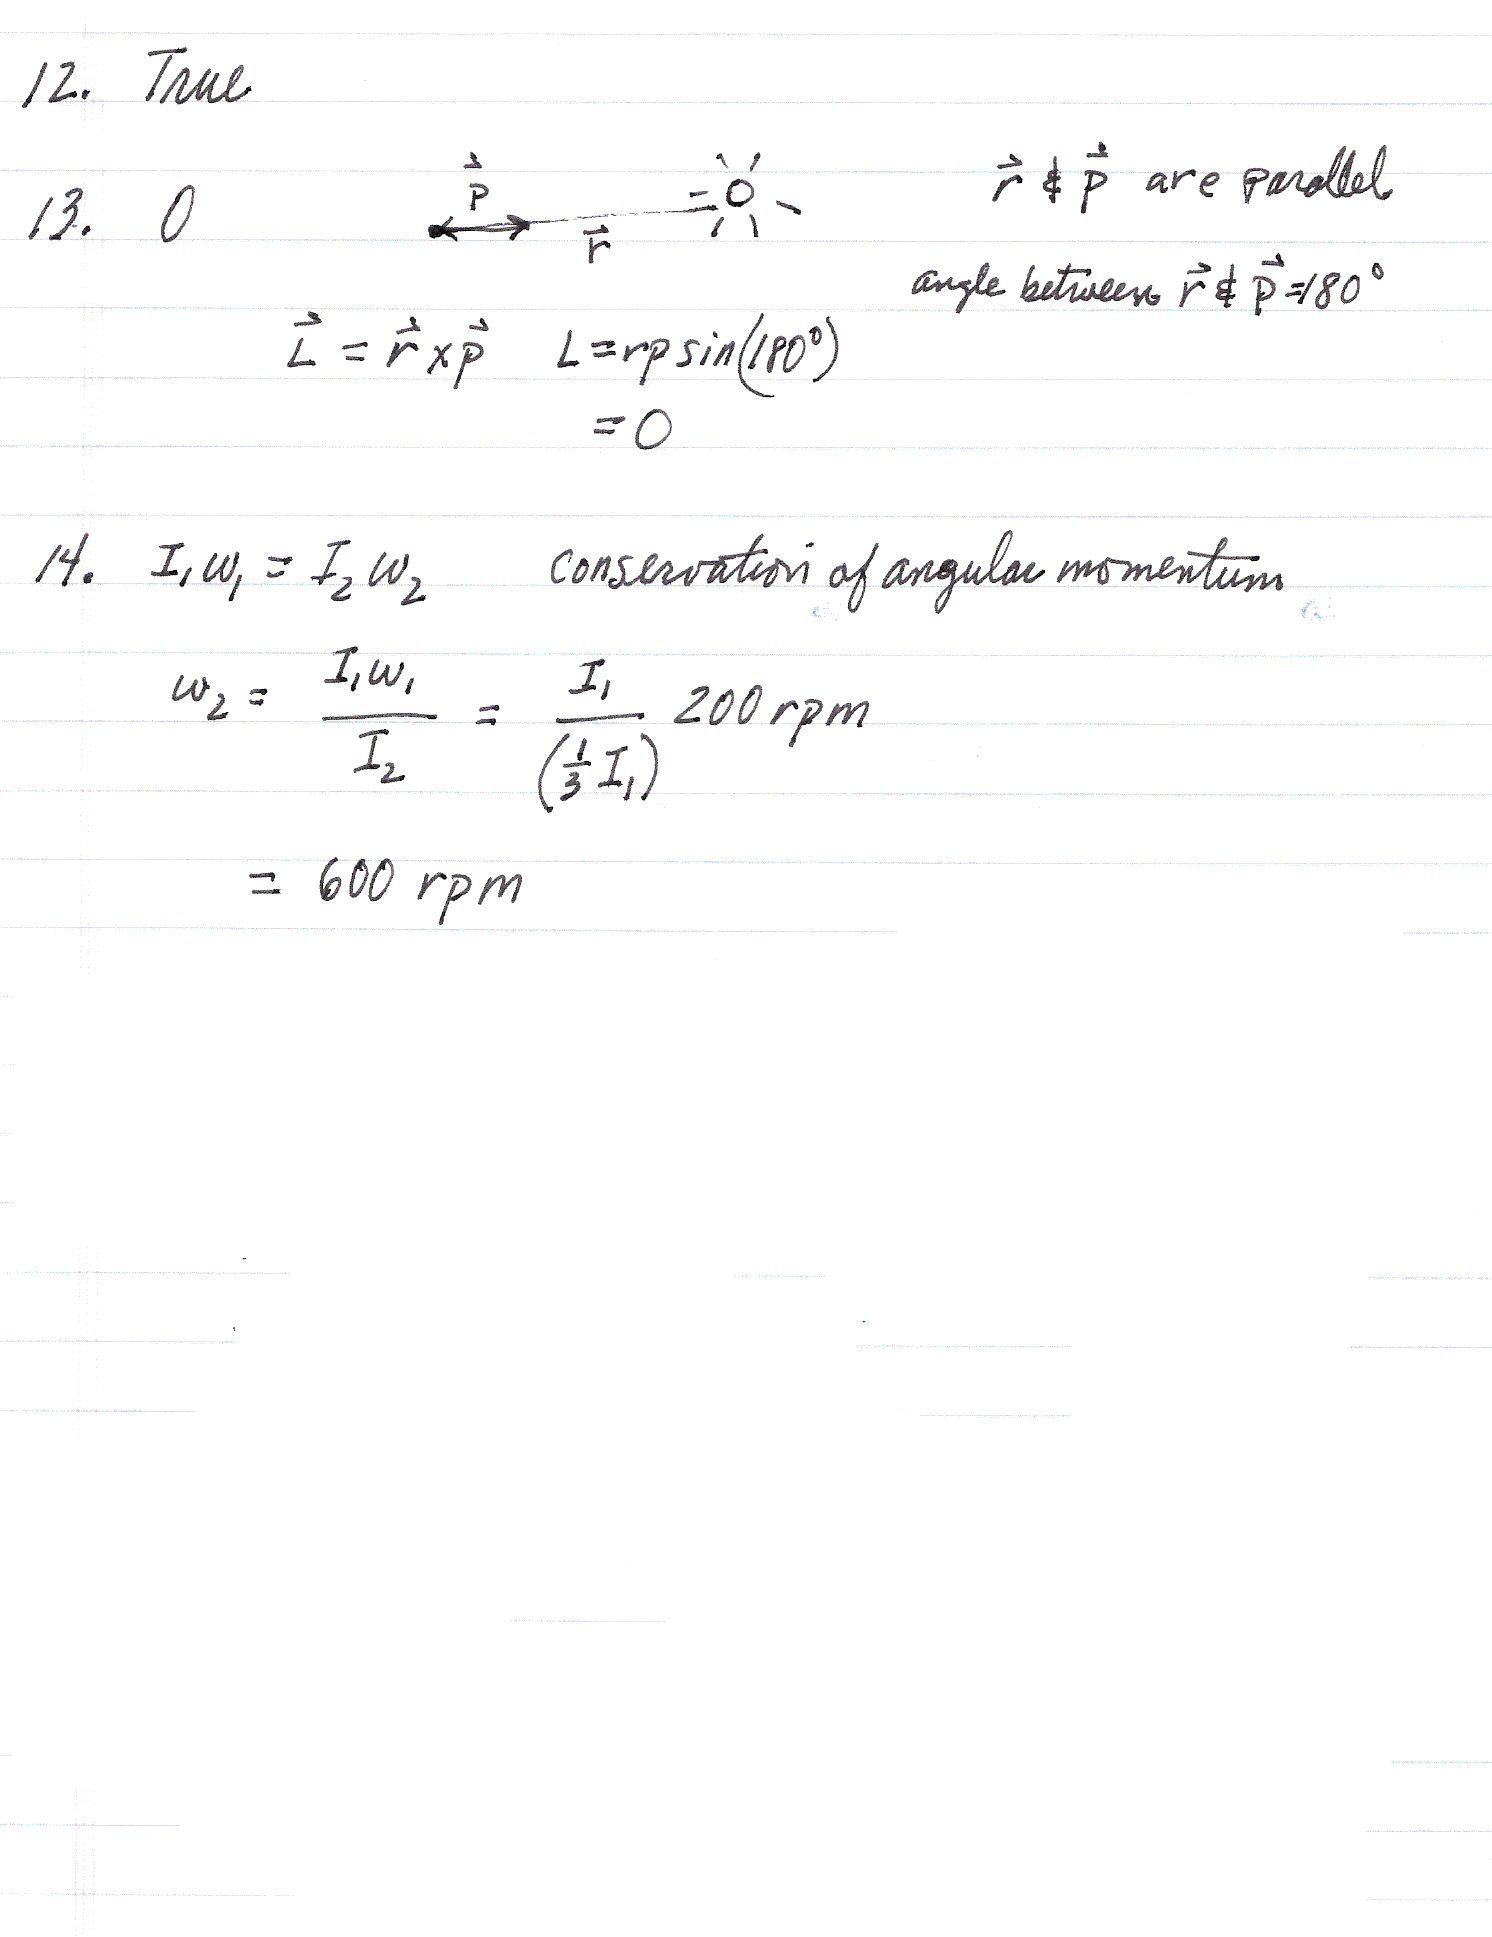 12. True
13. 0 p⃗ r⃗ r⃗ & p⃗ are parallel
angle between r⃗ & p⃗ = 180°
L⃗ = r⃗ × p⃗ L = rp sin(180°)
= 0
14. I₁ω₁ = I₂ω₂ conservation of angular momentum
ω₂ = I₁ω₁ / I₂ = I₁ / (1/3 I₁) 200 rpm
= 600 rpm